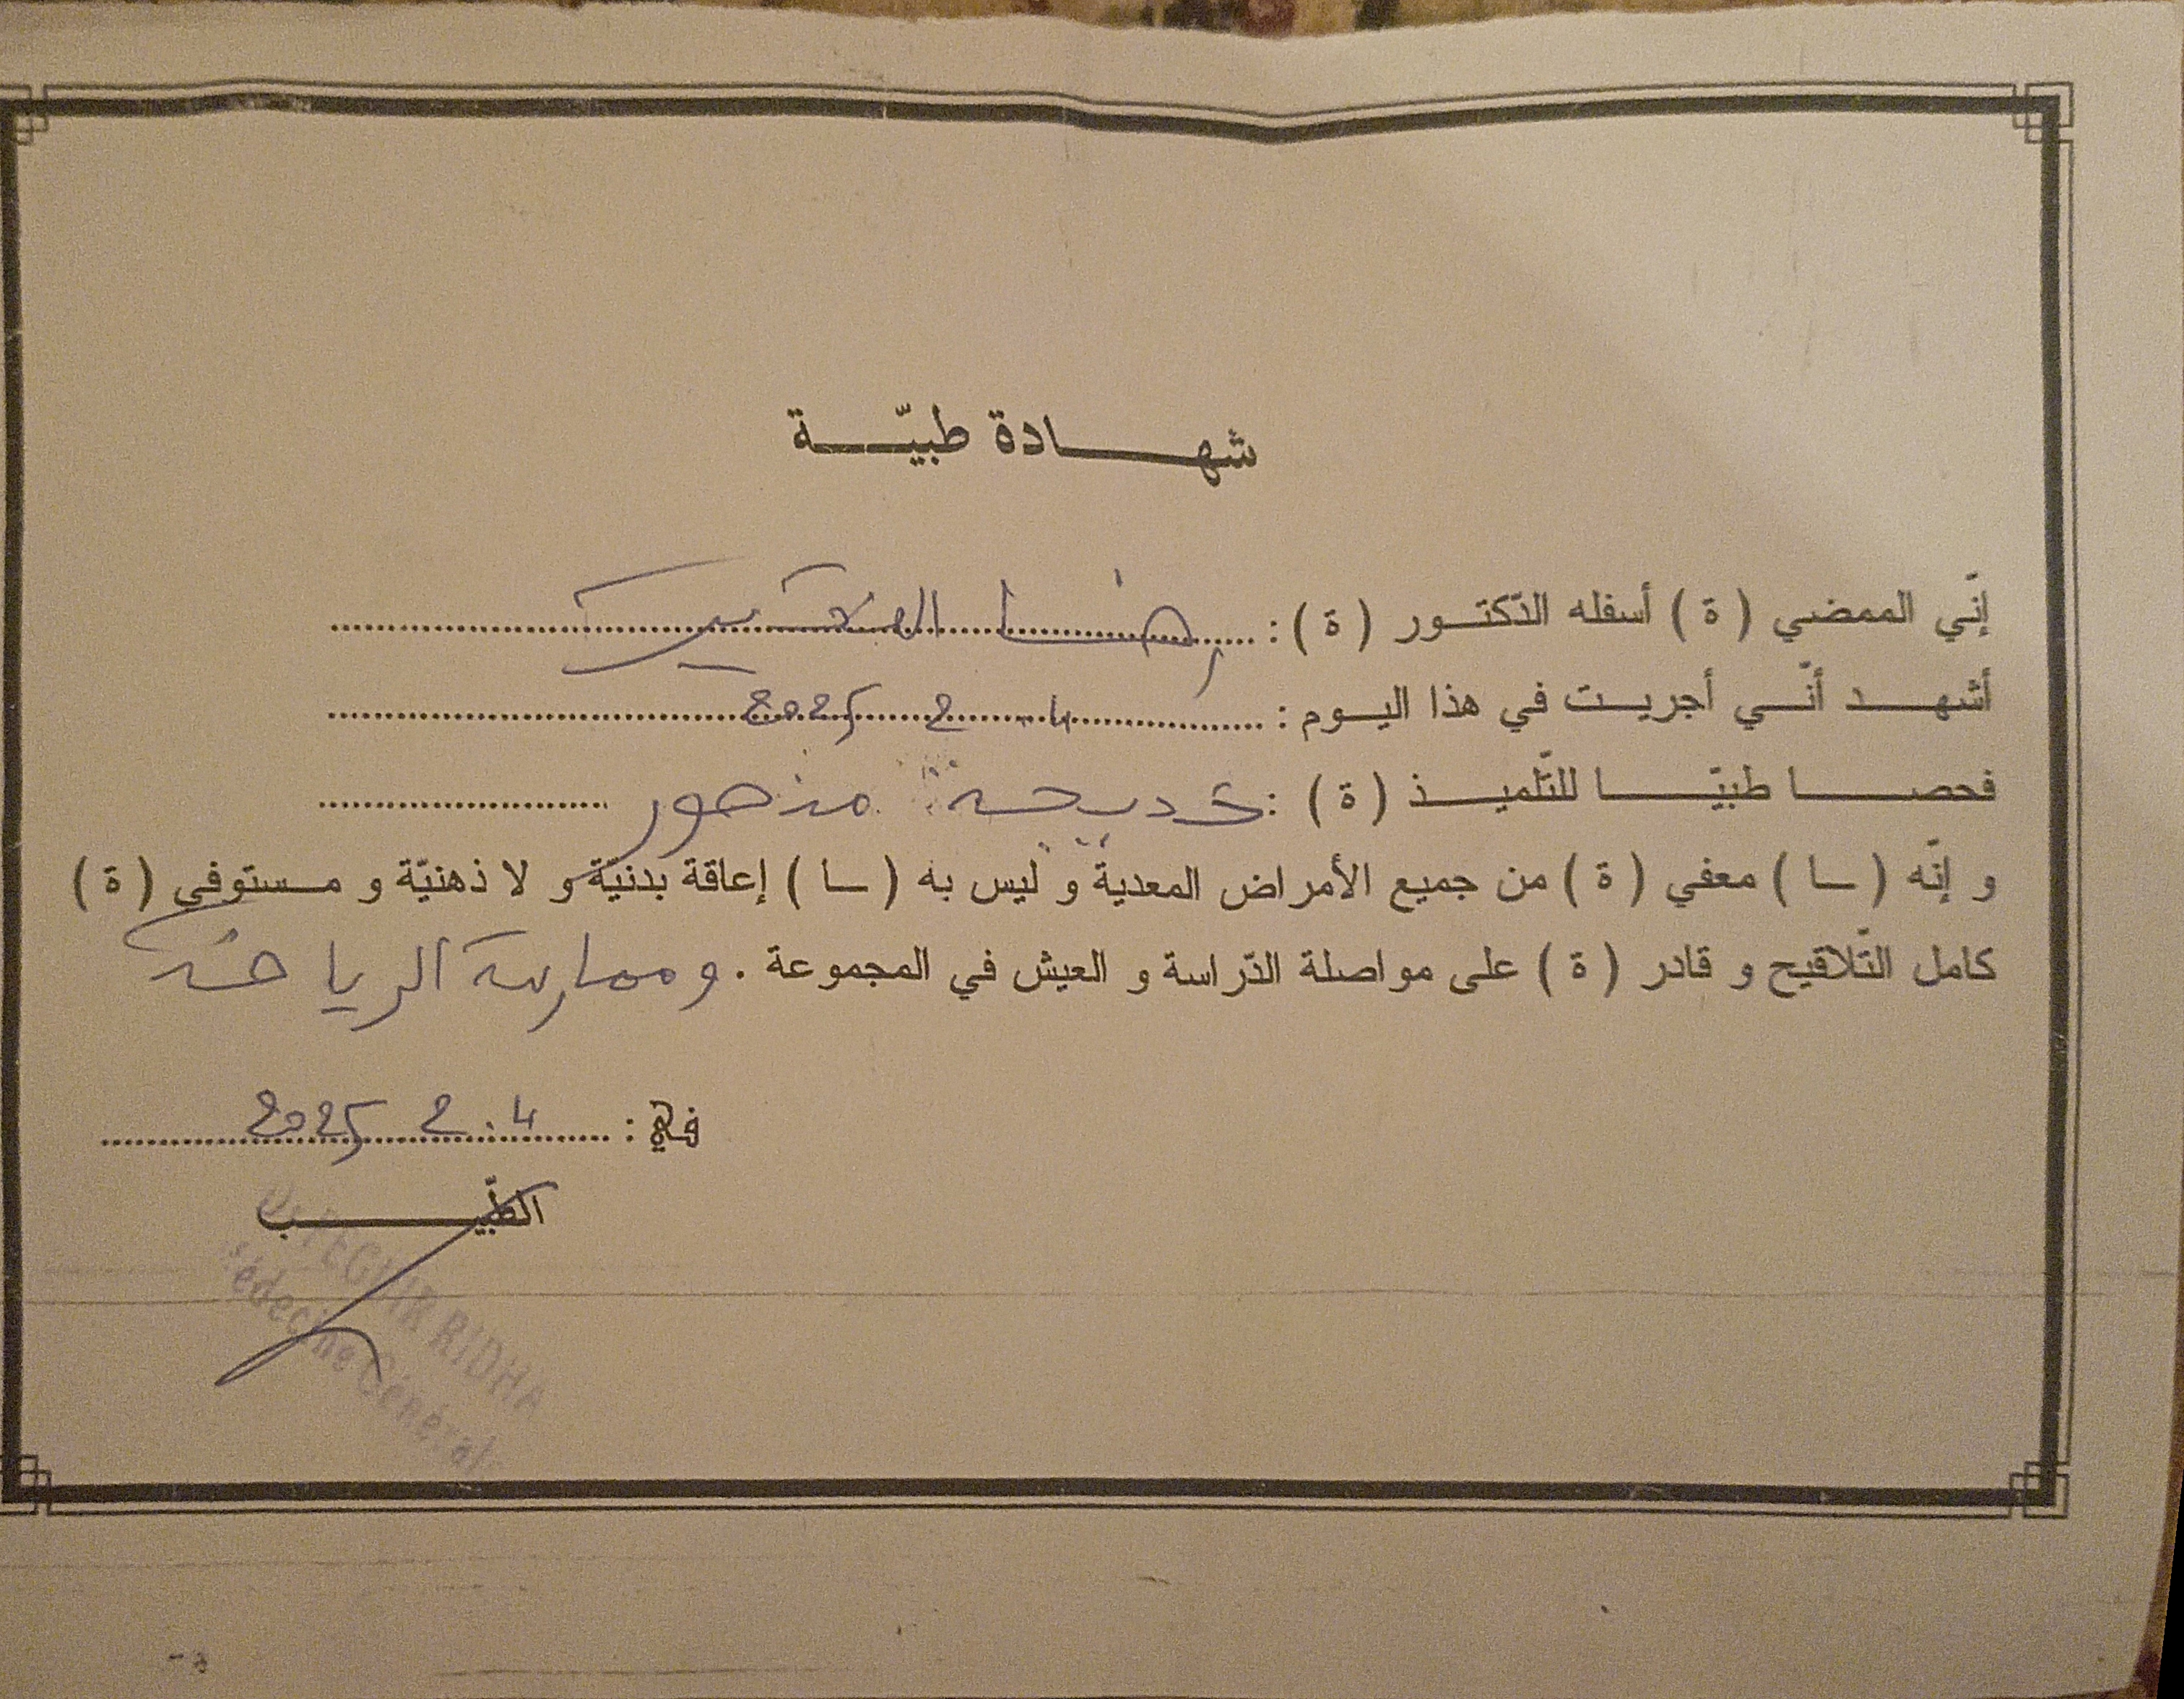 شهادة طبيّة
إنّي الممضي (ة) أسفله الدّكتور (ة) : رضا الصغير
أشهد أنّي أجريت في هذا اليوم : 4 2 2025
فحصا طبيّا للتّلميذ (ة) : خديجة منصور
و إنّه (ـا) معفي (ة) من جميع الأمراض المعدية و ليس به (ـا) إعاقة بدنيّة و لا ذهنيّة و مستوفي (ة)
كامل التّلاقيح و قادر (ة) على مواصلة الدّراسة و العيش في المجموعة . وممارسة الرياضة
في : 4 . 2 2025
الطّبيب
RIDHA
Médecine Générale